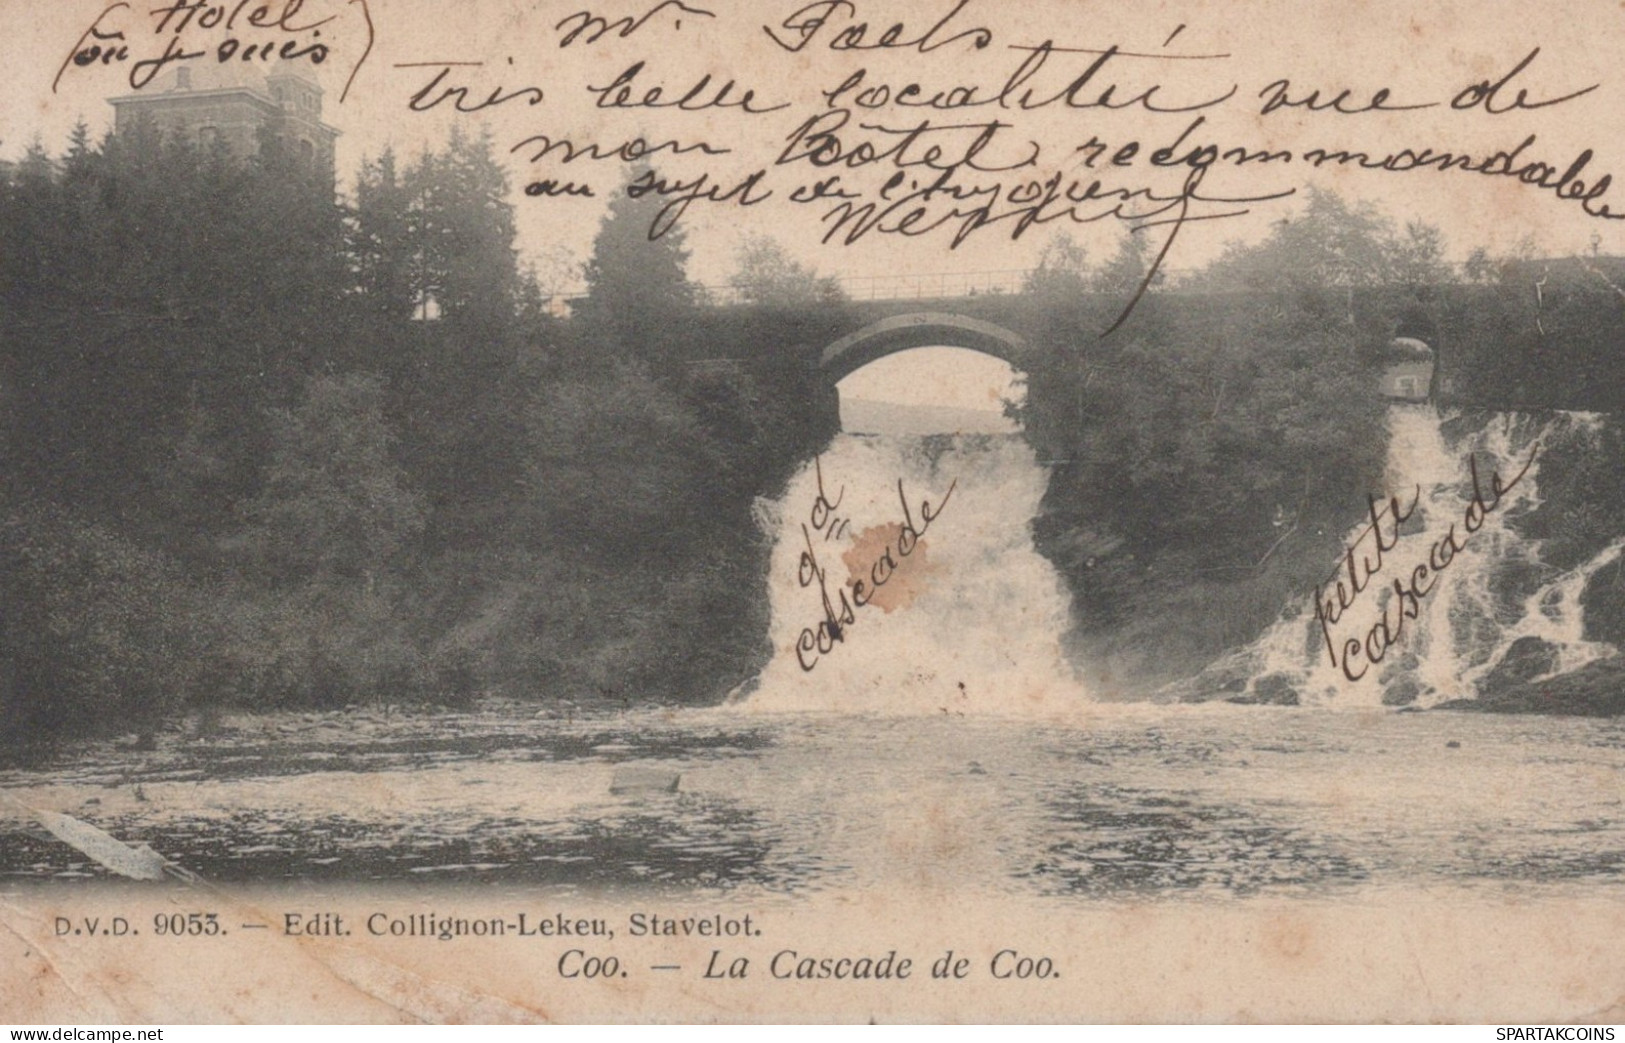 Hotel
(où je suis)
Mr.
très belle localité vue de
mon hôtel recommandable
au sujet de l'hygiène
gd
cascade
petite
cascade
D.V.D. 9053. — Edit. Collignon-Lekeu, Stavelot.
Coo. — La Cascade de Coo.
www.delcampe.net
SPARTAKCOINS